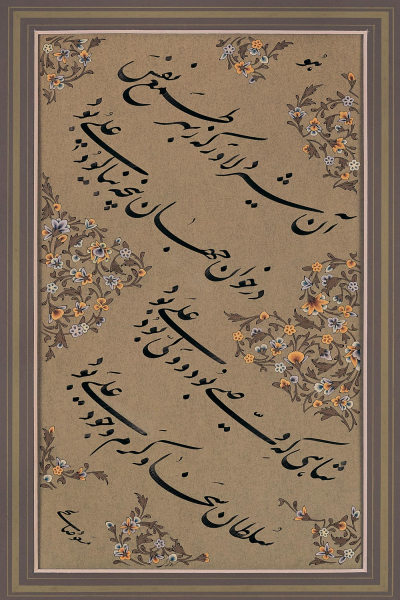 هو
آن شیر دلاور که ز بهر طمع نفس
در خوان جهان پنجه نیالود علی بود
شاهی که وصی بود و ولی بود علی بود
سلطان سخا و کرم و جود علی بود